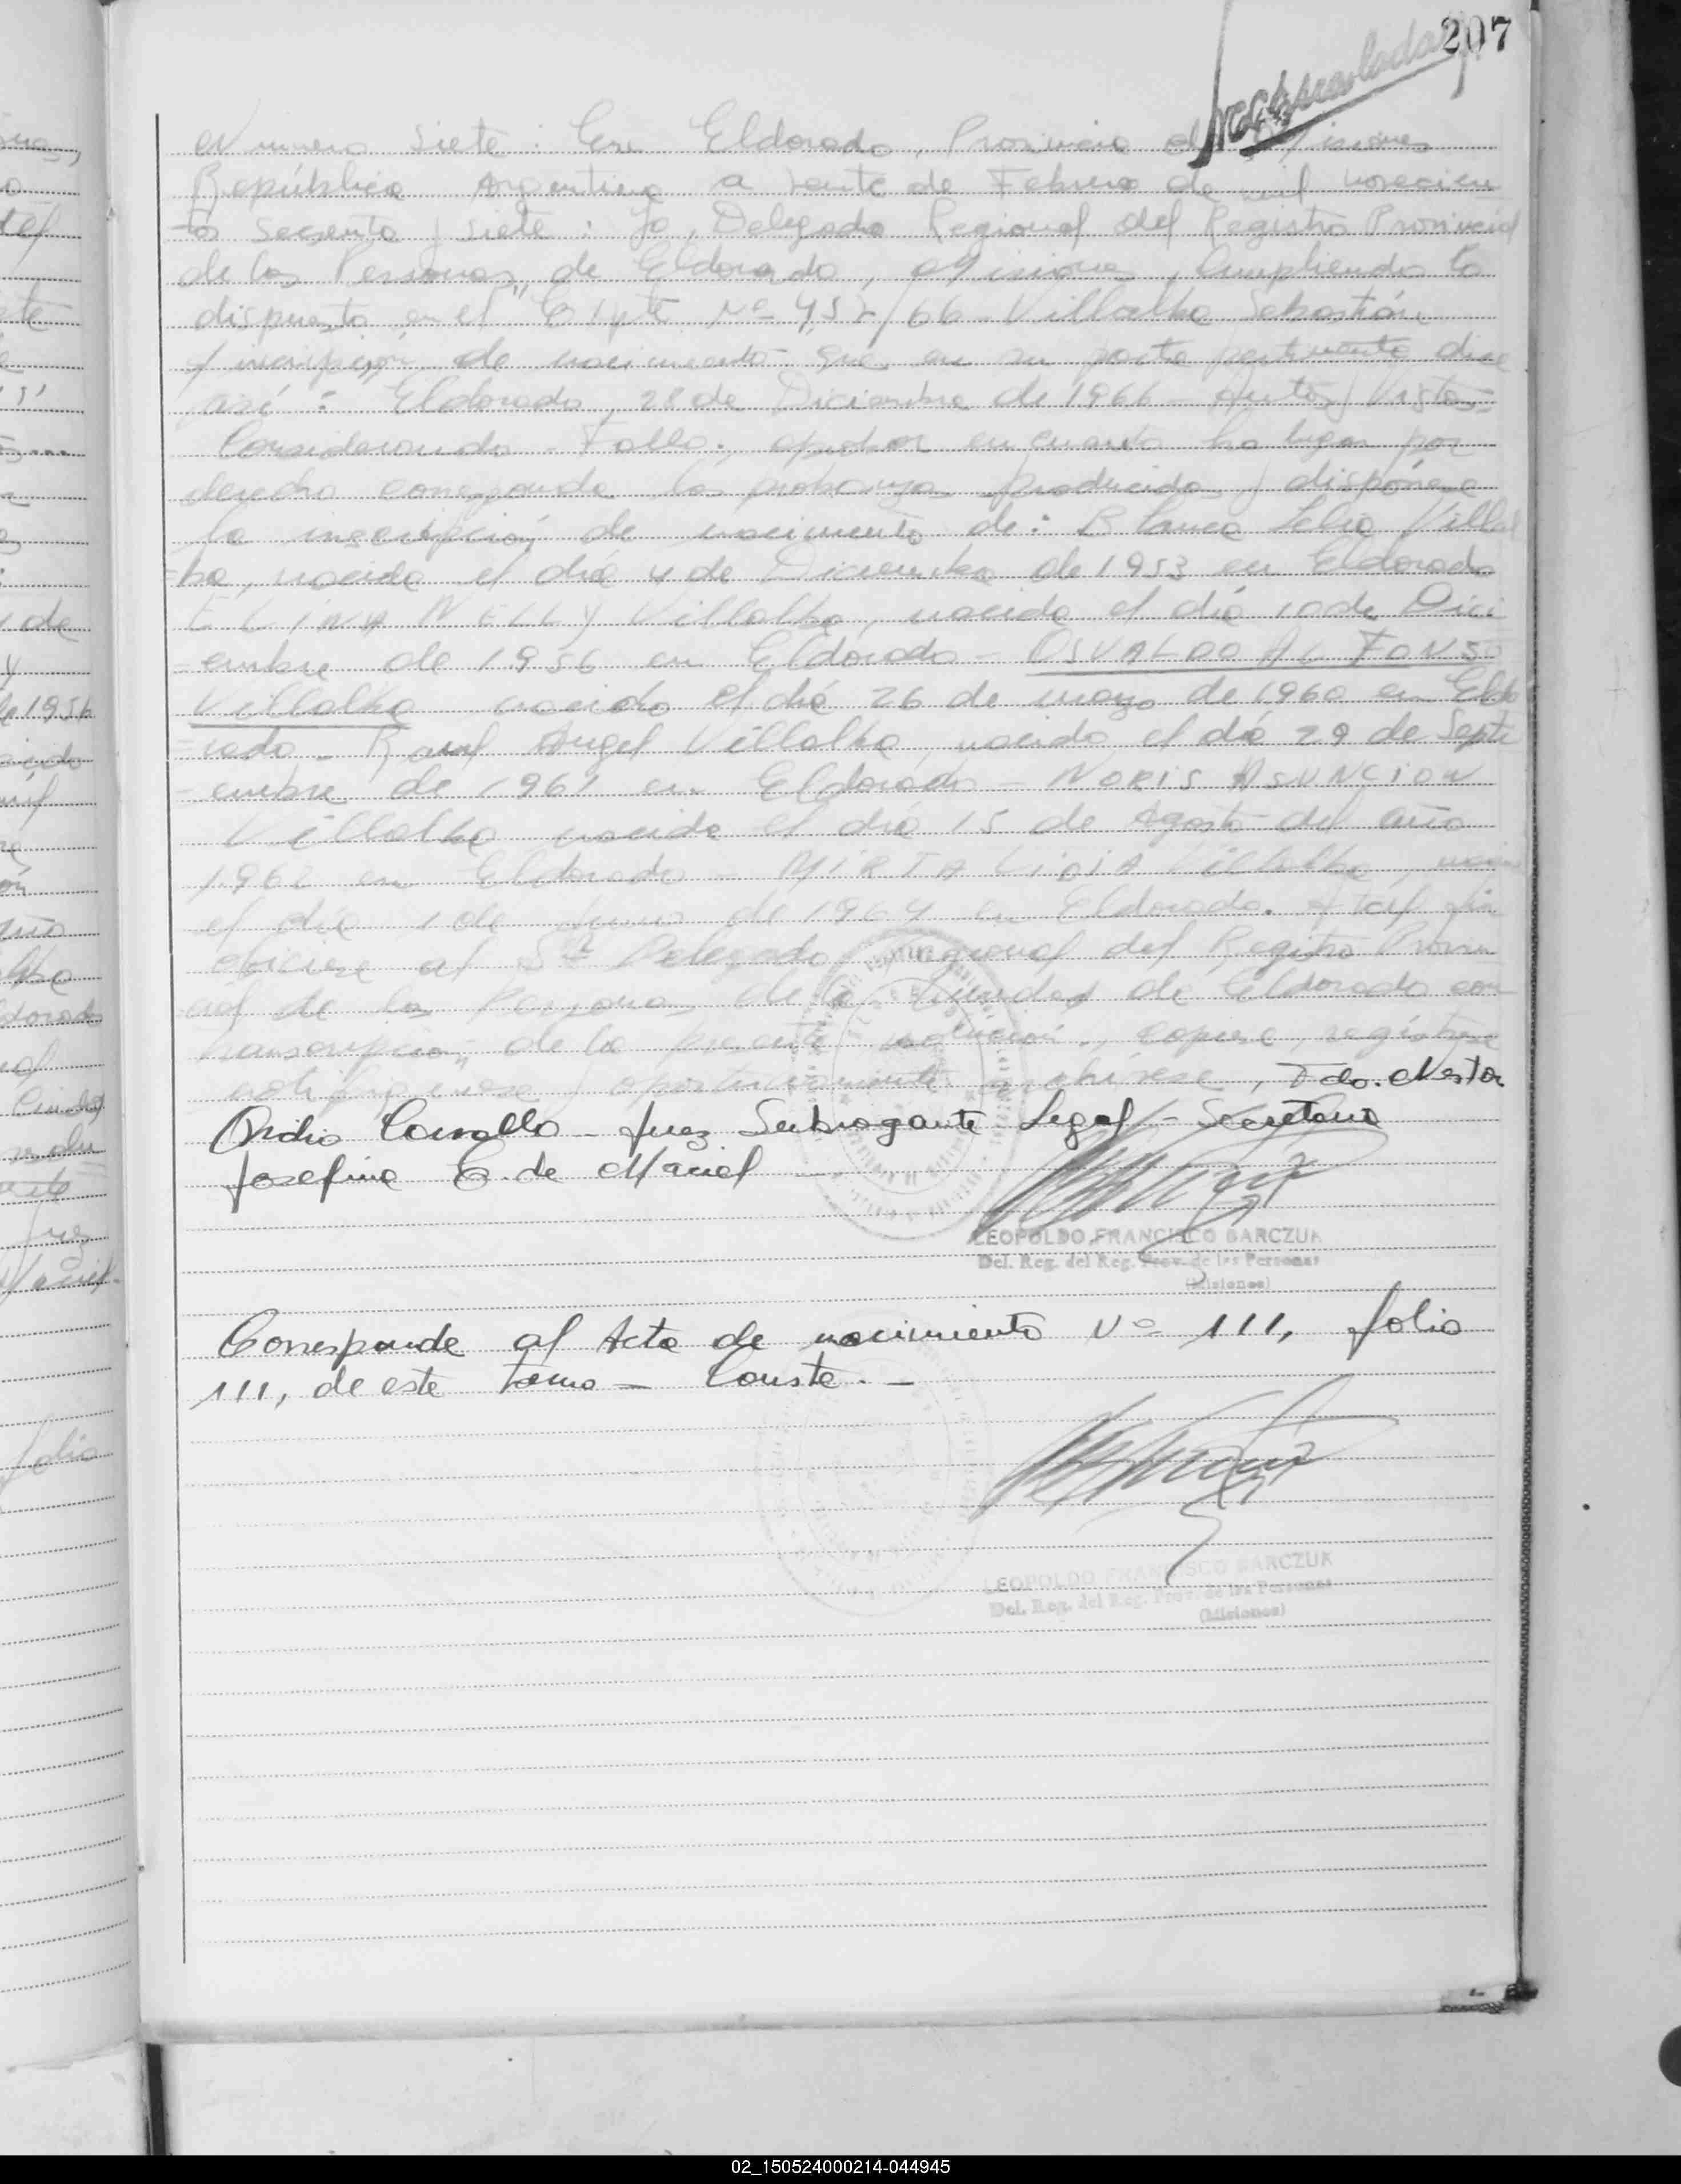 207
Numero Siete: En Eldorado, Provincia de Misiones
República Argentina a veinte de Febrero de mil novecien
tos Sesenta y siete: Yo, Delegado Regional del Registro Provincial
de las Personas, de Eldorado, Misiones, Cumpliendo lo
dispuesto en el "Expte Nº 452/66 - Villalba Sebastián
Inscripción de nacimiento - que en su parte pertinente dice
así: Eldorado, 28 de Diciembre de 1966 - Autos y Vistos:
Considerando - Fallo: aprobar en cuanto ha lugar por
derecho corresponda las probanzas producidas y dispónese
la inscripción de nacimiento de: Blanca Villal
ba, nacida el día 4 de Diciembre de 1953 en Eldorado
ELINA NELLY Villalba, nacida el día 10 de Dici
embre de 1956 en Eldorado - OSVALDO ALFONSO
Villalba nacido el día 26 de mayo de 1960 en Eldo
rado - Raul Angel Villalba, nacido el día 29 de Septi
embre de 1961 en Eldorado - NORIS ASUNCION
Villalba nacida el día 15 de Agosto del año
1962 en Eldorado - MIRTA LIDIA Villalba,
el día 1 de de 1964 en Eldorado. A tal fin
oficiese al Sr Delegado Regional del Registro Provin
cial de las Personas de la Ciudad de Eldorado con
transcripción de la presente resolución, copiese, registrese
notifiquese y oportunamente archivese, Fdo. Nestor
Ovidio Carvallo - Juez Subrogante Legal - Secretaria
Josefina E. de Maciel
LEOPOLDO FRANCISCO BARCZUK
Del. Reg. del Reg. Prov. de las Personas
(Misiones)
Corresponde al Acta de nacimiento Nº 111, folio
111, de este tomo - Conste. -
LEOPOLDO FRANCISCO BARCZUK
Del. Reg. del Reg. Prov. de las Personas
(Misiones)
02_150524000214-044945